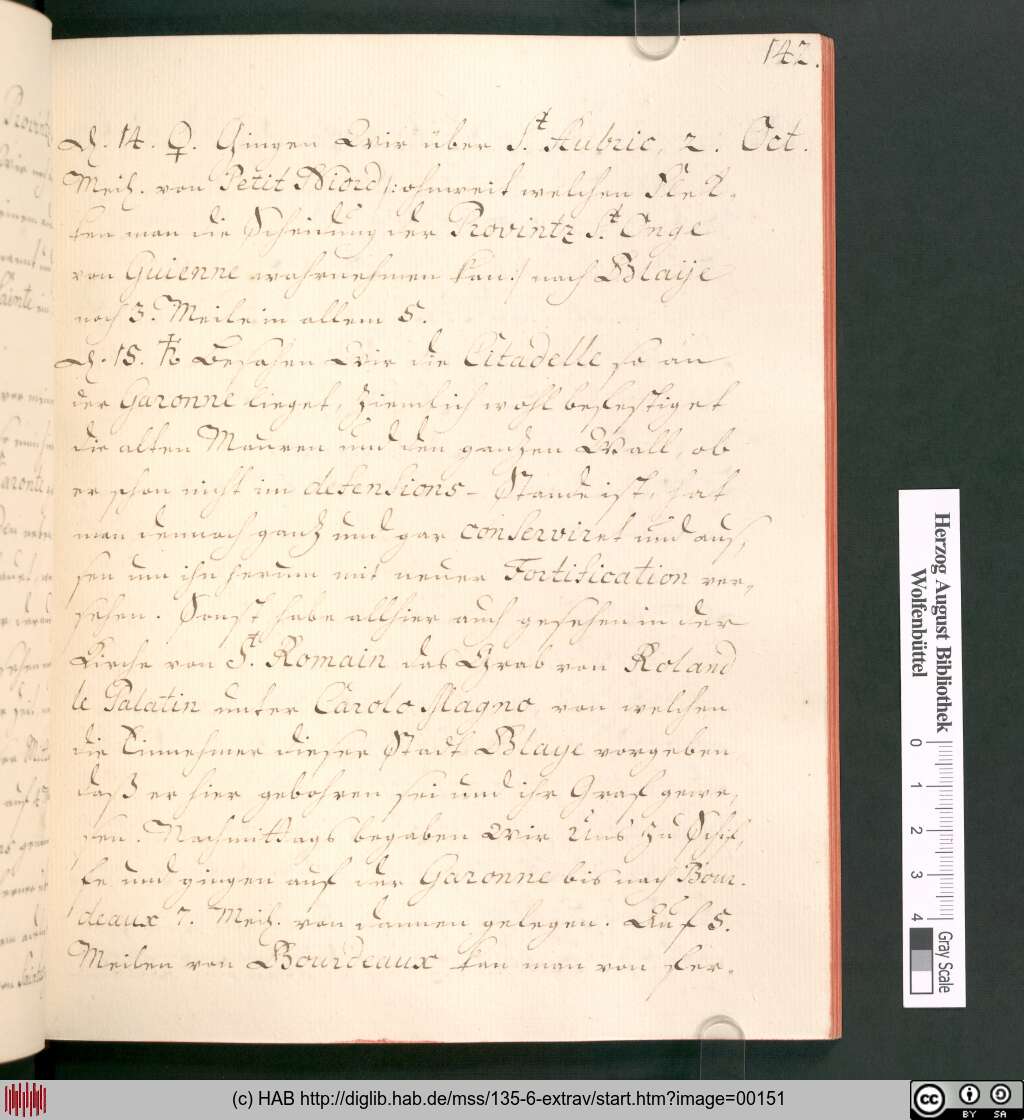 142.
D. 14. ♀. Gingen Wir über St. Aubric, 2. Oct.
Meil. von Petit Niord /: ohnweit welchen Flek-
ken man die Scheidung der Provintz St. Onge
von Guienne wahrnehmen kan :/ nach Blaije
noch 3. Meile in allem 5.
D. 15. ♄ Besahen Wir die Citadelle so an
der Garonne lieget, ziemlich wohl befestiget
die alten Mauren und den ganzen Wall, ob
er schon nicht im defensions-Stande ist, hat
man dennoch ganz und gar conserviret und aus-
sen um ihn herum mit neuer Fortification ver-
sehen. Sonst habe allhier auch gesehen in der
Kirche von St. Romain das Grab von Roland
le Palatin unter Carolo Magno, von welchen
die Einnehmer dieser Stadt Blaye vorgeben
daß er hier gebohren sei und ihr Graf gewe,
sen. Nachmittags begaben Wir Uns zu Schif,
fe und gingen auf der Garonne bis nach Bour-
deaux 7. Meil. von dannen gelegen. Auf 5.
Meilen von Bourdeaux kan man von fer-
Herzog August Bibliothek
Wolfenbüttel
0 1 2 3 4
Gray Scale
(c) HAB http://diglib.hab.de/mss/135-6-extrav/start.htm?image=00151
cc BY SA